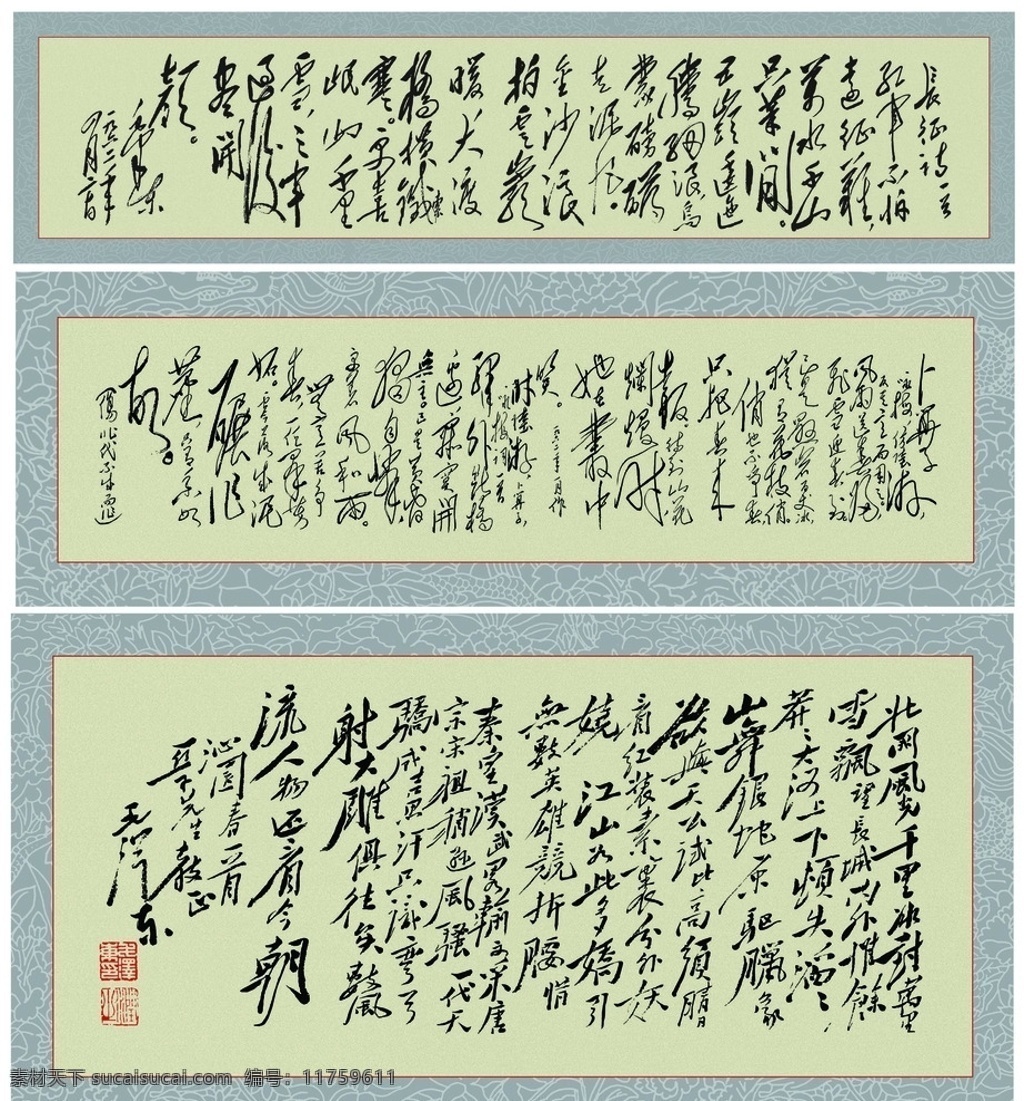 長征詩一首
紅軍不怕
遠征難,
萬水千山
只等閒。
五嶺逶迤
騰細浪,烏
蒙磅礴
走泥丸。
金沙浪
拍雲崖
暖,大渡
橋橫鐵索
寒。更喜
岷山千里
雪,三軍
過後
盡開
顏。
毛澤東
卜算子
咏梅
反其意而用之
風雨送春歸,
飛雪迎春到
已是懸崖百丈冰,
猶有花枝俏
俏也不爭春
只把春來
報。待到山花
爛熳時
她在叢中
笑。
陸游
卜算子
咏梅詞一首
驛外斷橋
邊,寂寞開
無主。已是黃昏
獨自愁,
更着風和雨。
無意苦爭
春,一任羣芳
妬。零落成泥
碾作
塵,只有香如
故。
北國風光千里冰封萬里
雪飄望長城內外惟餘
莽々大河上下頓失滔々
山舞銀蛇原驅臘象
欲與天公試比高須晴日
看紅裝素裹分外妖
嬈 江山如此多嬌引
無數英雄競折腰惜
秦皇漢武略輸文采唐
宗宋祖稍遜風騷一代天
驕成吉思汗只識彎弓
射大雕俱往矣數風
流人物還看今朝
沁園春一首
亞子先生教正
毛澤東
素材天下 sucaisucai.com 编号:11759611